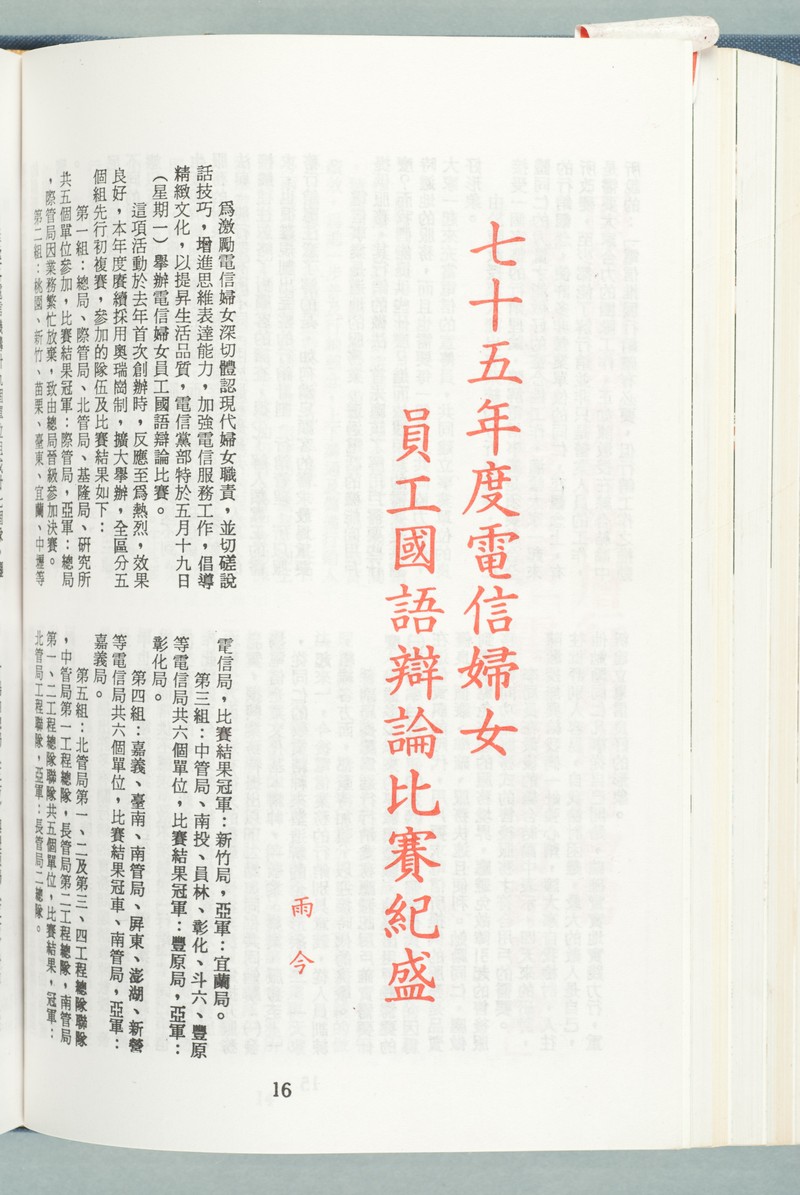 七十五年度電信婦女
員工國語辯論比賽紀盛
雨今
為激勵電信婦女深切體認現代婦女職責，並切磋說
話技巧，增進思維表達能力，加強電信服務工作，倡導
精緻文化，以提昇生活品質，電信黨部特於五月十九日
（星期一）舉辦電信婦女員工國語辯論比賽。
這項活動於去年首次創辦時，反應至為熱烈，效果
良好，本年度賡續採用奧瑞崗制，擴大舉辦，全區分五
個組先行初複賽，參加的隊伍及比賽結果如下：
第一組：總局、際管局、北管局、基隆局、研究所
共五個單位參加，比賽結果冠軍：際管局，亞軍：總局
，際管局因業務繁忙放棄，致由總局晉級參加決賽。
第二組：桃園、新竹、苗栗、臺東、宜蘭、中壢等
電信局，比賽結果冠軍：新竹局，亞軍：宜蘭局。
第三組：中管局、南投、員林、彰化、斗六、豐原
等電信局共六個單位，比賽結果冠軍：豐原局，亞軍：
彰化局。
第四組：嘉義、臺南、南管局、屏東、澎湖、新營
等電信局共六個單位，比賽結果冠車、南管局，亞軍：
嘉義局。
第五組：北管局第一、二及第三、四工程總隊聯隊
，中管局第一工程總隊，長管局第二工程總隊，南管局
第一、二工程總隊聯隊共五個單位，比賽結果，冠軍：
北管局工程聯隊，亞軍：長管局二總隊。
16